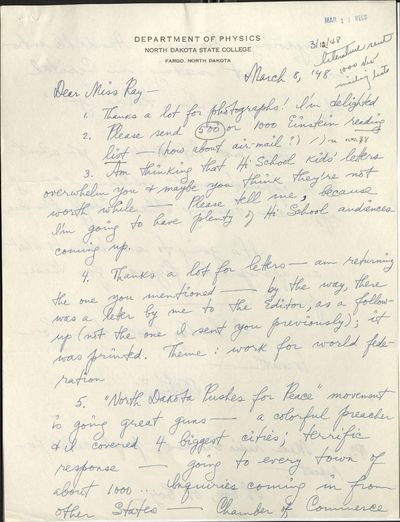 DEPARTMENT OF PHYSICS
NORTH DAKOTA STATE COLLEGE
FARGO, NORTH DAKOTA
MAR 11 RECD
3/12/48
literature sent
1000
mailing lists
March 8, '48
Dear Miss Ray —
1. Thanks a lot for photographs! I'm delighted
2. Please send 500 or 1000 Einstein reading
list — (how about air-mail?)
3. Am thinking that Hi School kids' letters
overwhelm you & maybe you think they're not
worth while — Please tell me, because
I'm going to have plenty of Hi School audiences
coming up.
4. Thanks a lot for letters — am returning
the one you mentioned — by the way, there
was a letter by me to the Editor, as a follow-
up (not the one I sent you previously); it
was printed. Theme: work for world fede-
ration
5. "North Dakota Pushes for Peace" movement
is going great guns — a colorful preacher
& I covered 4 biggest cities; terrific
response — going to every town of
about 1000 ... Inquiries coming in from
other States — Chamber of Commerce